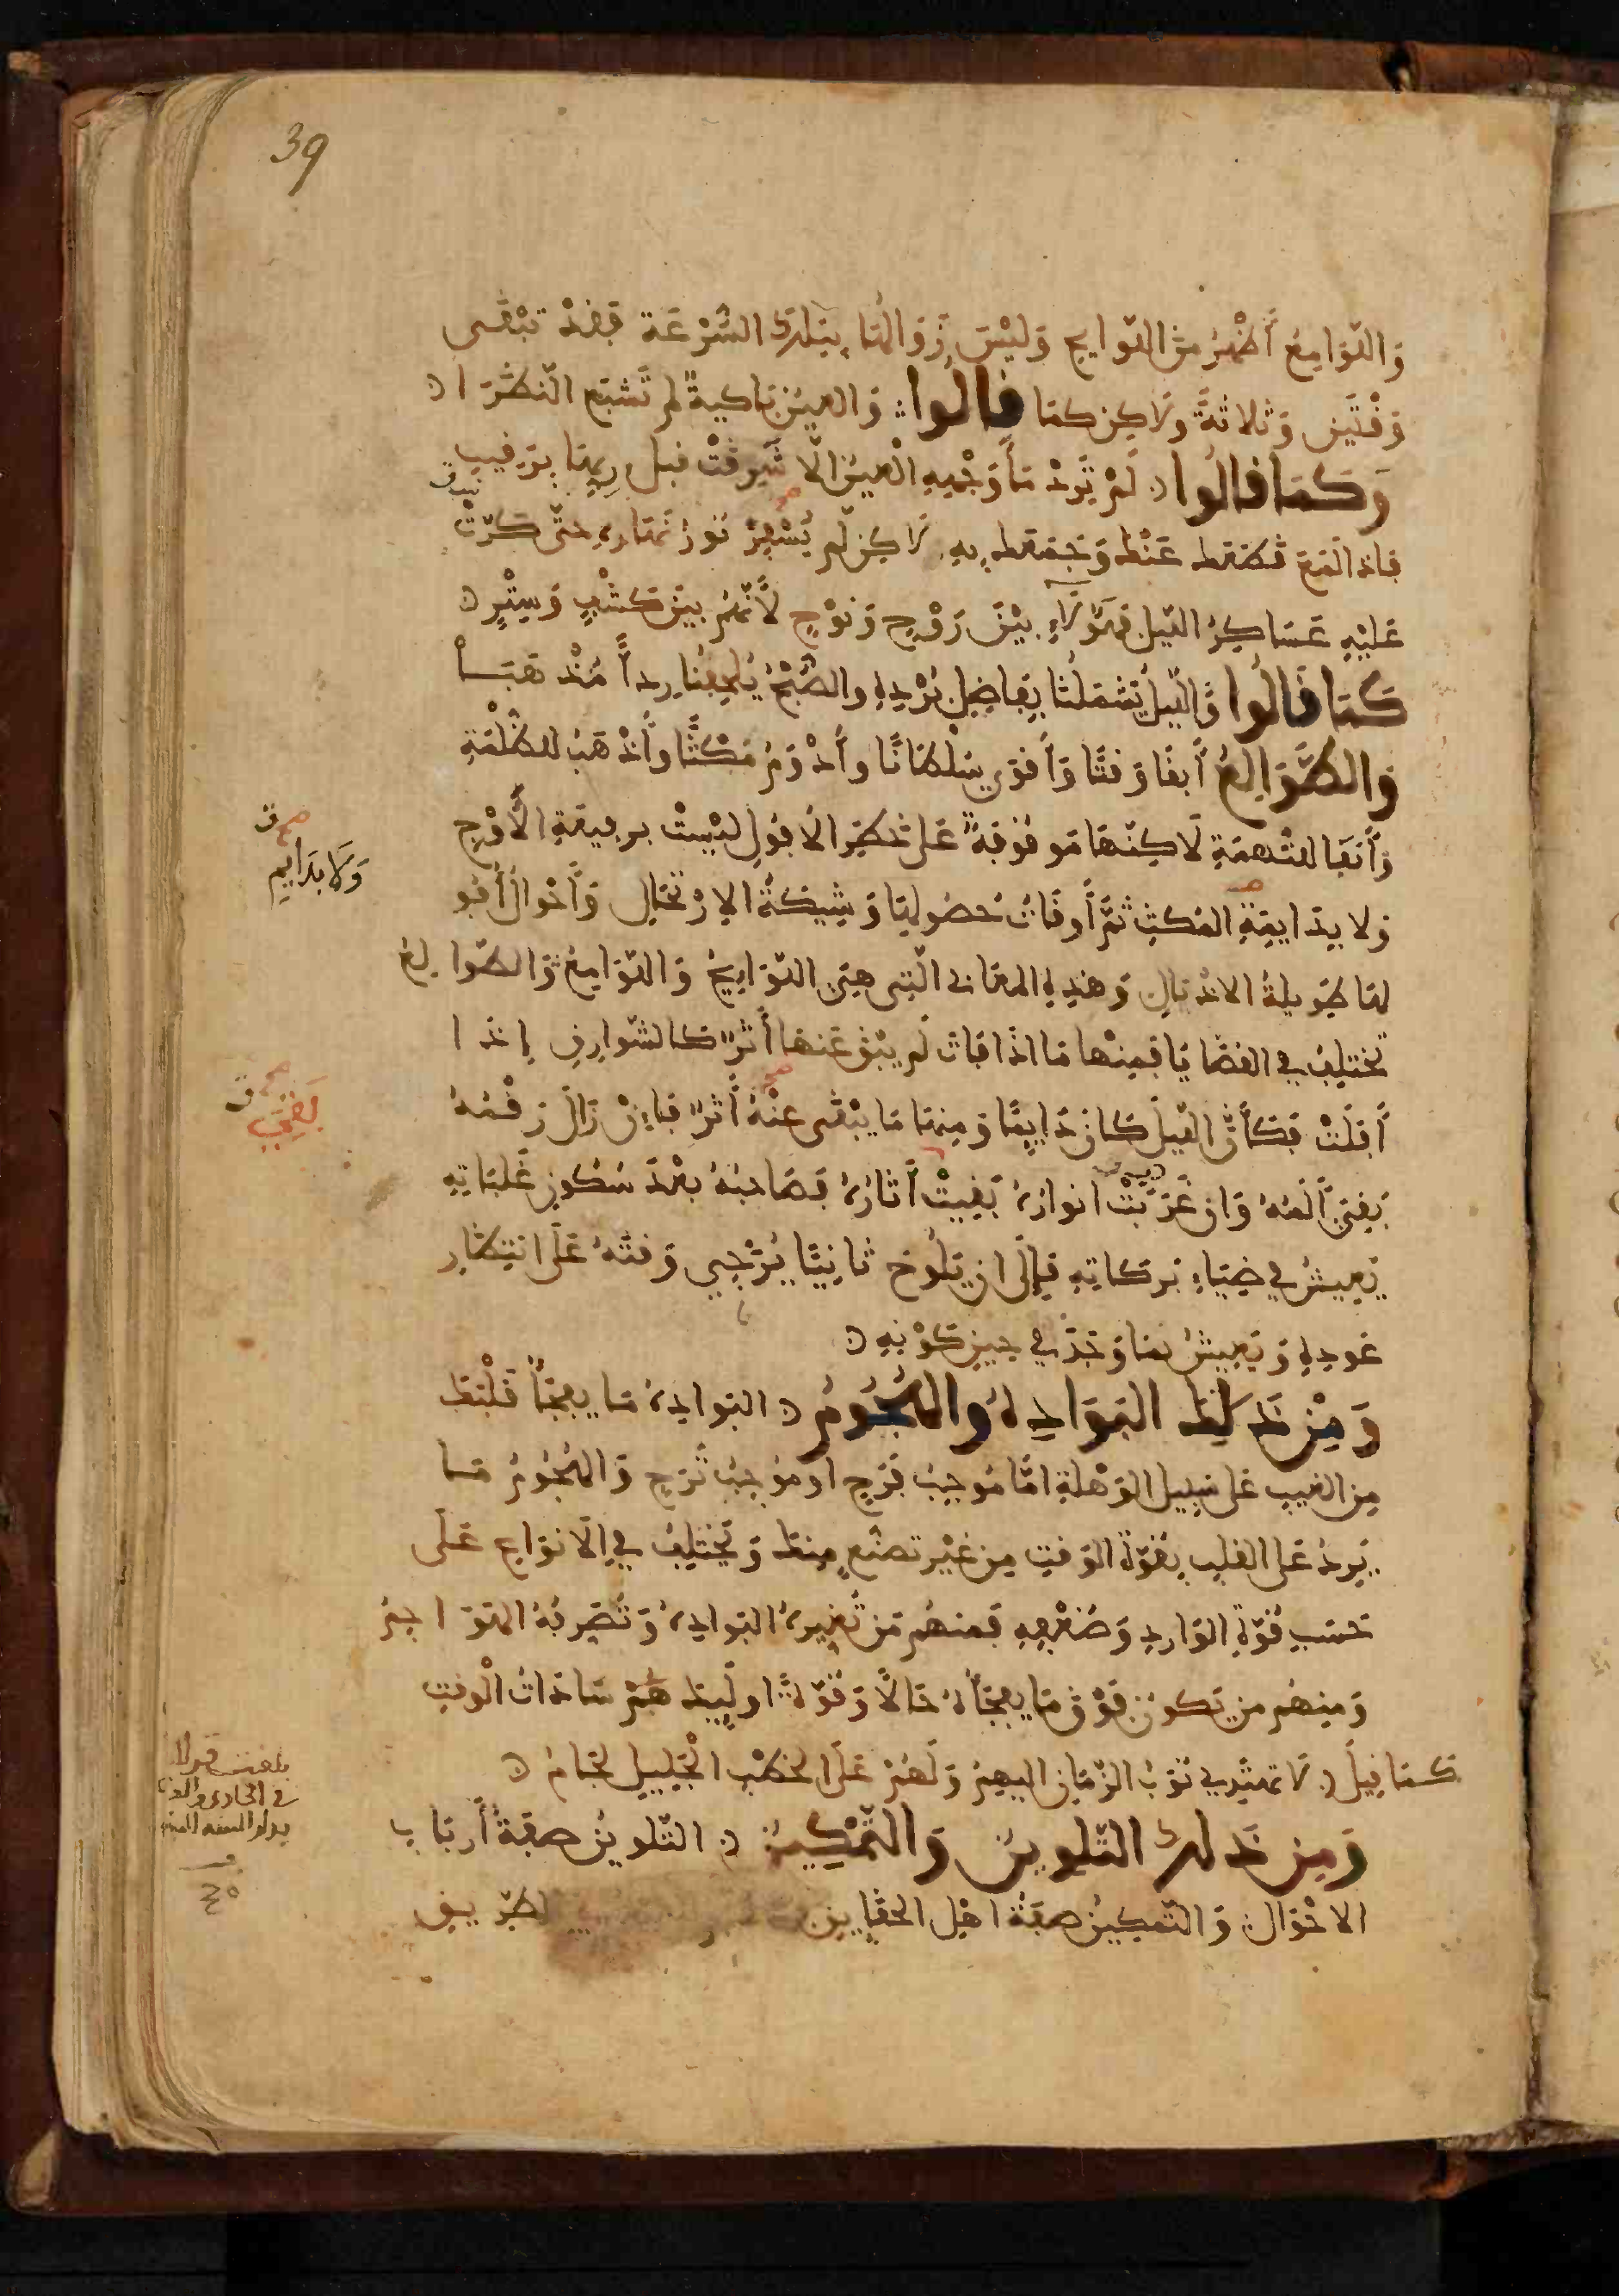 39
وَاللّوَامِعُ أَظْهَرُ مِنَ اللّوَايِحِ وَلَيْسَ زَوَالُهَا بِتِلْكَ السُّرْعَةِ فَقَدْ تَبْقَى
وَقْتَيْنِ وَثَلَاثَةً وَلَاكِنْ كَمَا قَالُوا وَالعَيْنُ بَاكِيَةٌ لَمْ تَشْبَعِ النَّظَرَا
وَكَمَا قَالُوا لَمْ تَرِدْ مَاءَ وَجْهِهِ الْعَيْنُ الَّا شَرِقَتْ قَبْلَ رِيِّهَا بِرَقِيبِ
فَاِذَا لَمَعَ قَطَعَكَ عَنْكَ وَجَمَعَكَ بِهِ لَاكِنْ لَمْ يُسْفِرْ نُورُ نَهَارِهِ حَتَّى كَرَّتْ
عَلَيْهِ عَسَاكِرُ اللَّيْلِ فَهَؤُلَاءِ بَيْنَ رَوْحٍ وَنَوْحٍ لِأَنَّهُمْ بَيْنَ كَشْفٍ وَسِتْرٍ
كَمَا قَالُوا وَاللَّيْلُ يَشْمَلُنَا بِفَاضِلِ بُرْدِهِ وَالصُّبْحُ يُلْحِفُنَا رِدَاءً مُذْهَبَا
وَالطَّوَالِعُ أَبْقَا وَقْتًا وَأَقْوَى سُلْطَانًا وَأَدْوَمُ مُكْثًا وَأَذْهَبُ لِلظُّلْمَةِ
وَأَنْفَا لِلتُّهَمَةِ لَاكِنَّهَا مَوْقُوفَةٌ عَلَى خَطَرِ الأُفُولِ لَيْسَتْ بِرَفِيعَةِ الْأَوْجِ
وَلَا بِدَايِمَةِ المُكْثِ ثُمَّ أَوْقَاتُ حُصُولِهَا وَشِيكَةُ الِارْتِحَالِ وَأَحْوَالُ أُفُو
لِهَا طَوِيلَةُ الاذْيَالِ وَهَذِهِ المَعَانِي الَّتِي هِيَ اللّوَايِحُ وَاللّوَامِعُ وَالطَّوَالِعُ
تَخْتَلِفُ فِي القَضَايَا فَمِنْهَا مَا اذَا فَاتَ لَمْ يَبْقَ عَنْهَا أَثَرٌ كَالشَّوَارِقِ إِذَا
أَفَلَتْ فَكَأَنَّ اللَّيْلَ كَانَ دَايِمًا وَمِنْهَا مَا يَبْقَى عَنْهُ أَثَرٌ فَإِنْ زَالَ رَقْمُهُ
بَقِيَ أَلَمُهُ وَانْ غَرَبَتْ انْوَارُهُ بَقِيَتْ آثَارُهُ فَصَاحِبُهُ بَعْدَ سُكُونِ غَلَبَاتِهِ
يَعِيشُ فِي ضِيَاءِ بَرَكَاتِهِ فَإِلَى ان يَلُوحَ ثَانِيًا يُزْجِي وَقْتَهُ عَلَى انْتِظَارِ
عَوْدِهِ وَيَعِيشُ بِمَا وَجَدَ فِي حِينِ كَوْنِهِ
وَمِنْ ذَلِكَ البَوَادِهُ وَالهُجُومُ البَوَادِهُ مَا يَفْجَأُ قَلْبَكَ
مِنَ الغَيْبِ عَلَى سَبِيلِ الوَهْلَةِ امَّا مُوجِبُ فَرَحٍ او مُوجِبُ تَرَحٍ وَالهُجُومُ مَا
يَرِدُ عَلَى القَلْبِ بِقُوَّةِ الوَقْتِ مِنْ غَيْرِ تَصَنُّعٍ مِنْكَ وَيَخْتَلِفُ فِي الَانْوَاعِ عَلَى
حَسَبِ قُوَّةِ الوَارِدِ وَضُعْفِهِ فَمِنْهُم مَن تُغَيِّرُهُ البَوَادِهُ وَتُصَرِّفُهُ الهَوَاجِمُ
وَمِنْهُم مَن يَكُونُ فَوْقَ مَا يَفْجَأُهُ حَالًا وَقُوَّةً اولَيِكَ هُمْ سَادَاتُ الْوَقْتِ
كَمَا قِيلَ لَا تَهْتَدِي نُوَبُ الزَّمَانِ الَيْهِمْ وَلَهُمْ عَلَى الخَطْبِ الْجَلِيلِ لِجَامُ
وَمِن ذَلِكَ التَّلْوِينُ وَالتَّمْكِينُ التَّلْوِينُ صِفَةُ أَرْبَابِ
الاحْوَالِ وَالتَّمْكِينُ صِفَةُ اهْلِ الحَقَايِقِ الطَّرِيقِ
وَلَا بِدَايِمِ